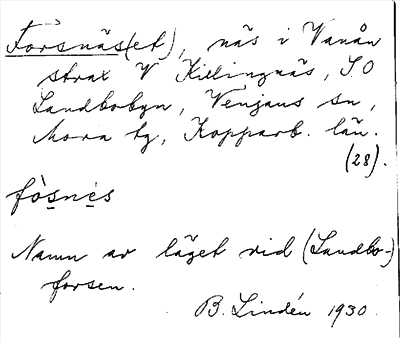 Forsnäs(et), näs i Vanån
strax V Killingnäs, S.O
Landbobyn, Venjans sn,
Mora tg, Kopparb. län.
(28).
fò̱sne̱s
Namn av läget vid (Landbo-)
forsen.
B. Lindén 1930.